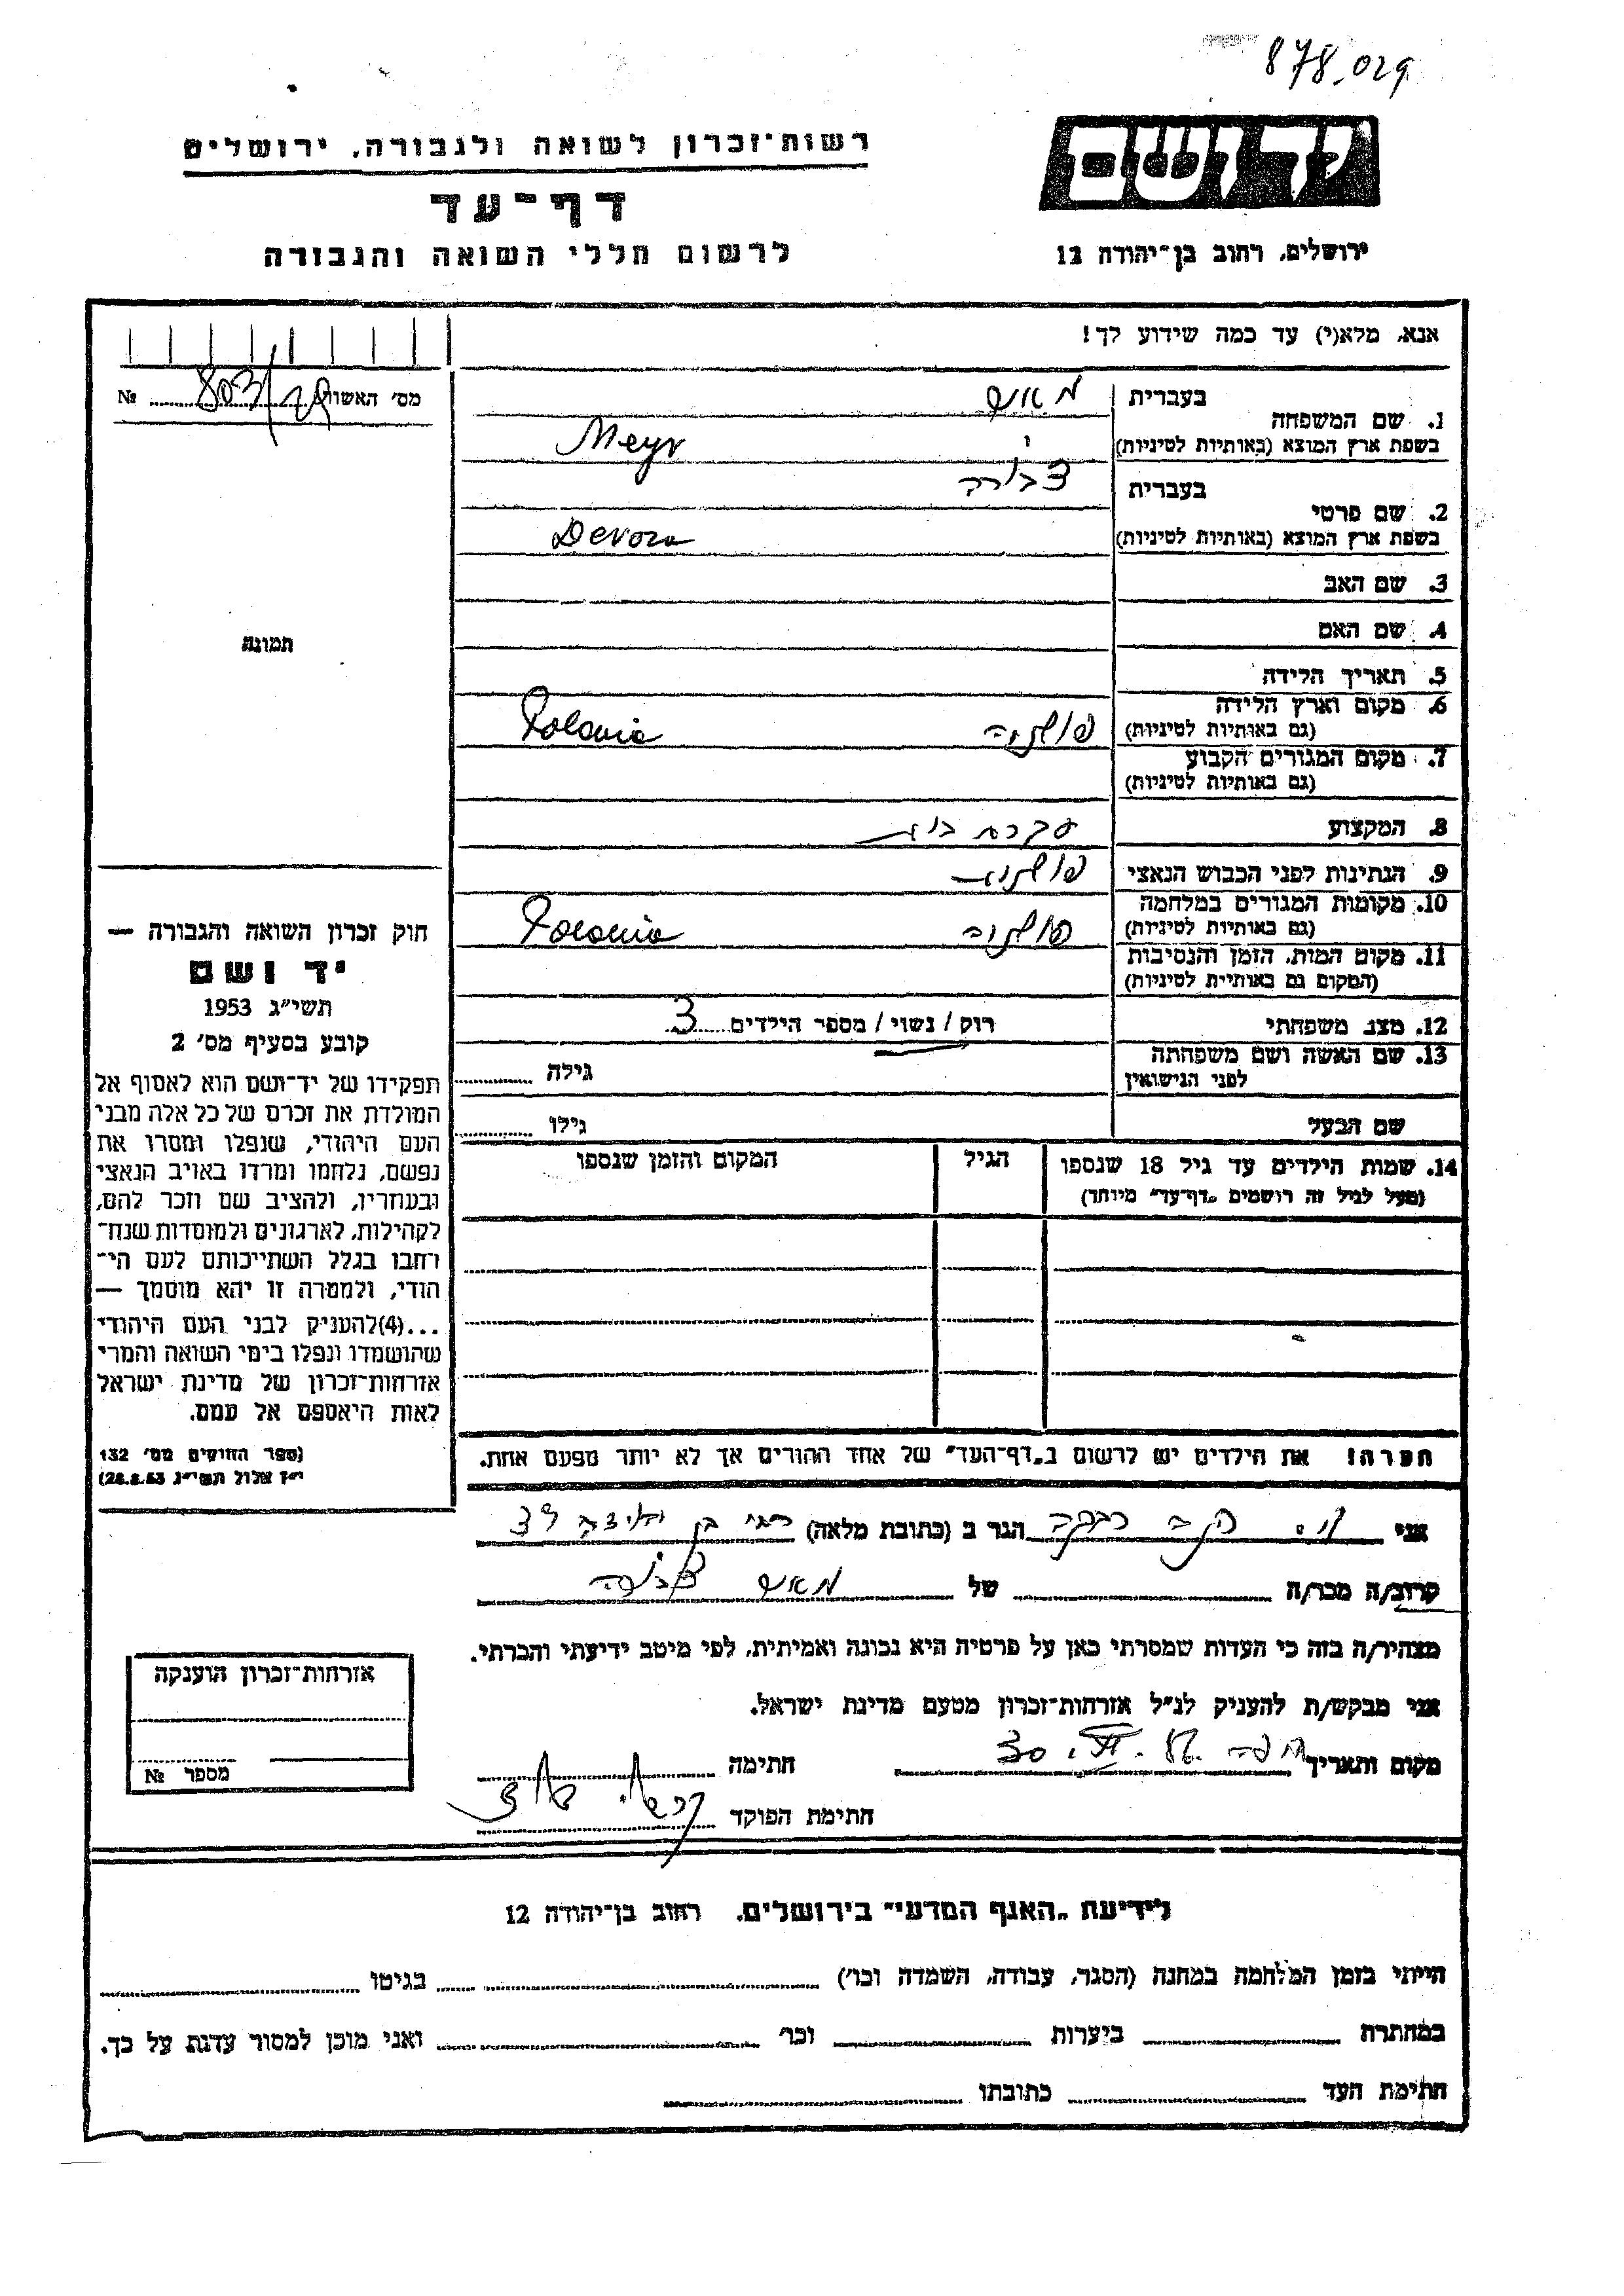 878.029
יד ושם
ירושלים, רחוב בן־יהודה 12
רשות־זכרון לשואה ולגבורה, ירושלים
דף־עד
לרשום חללי השואה והגבורה
אנא, מלא(י) עד כמה שידוע לך!
מס' האשור 803/28 №
תמונה
1. שם המשפחה
בעברית מאיר
בשפת ארץ המוצא (באותיות לטיניות) Meyr
2. שם פרטי
בעברית דבורה
בשפת ארץ המוצא (באותיות לטיניות) Devora
3. שם האב
4. שם האם
5. תאריך הלידה
6. מקום וארץ הלידה
(גם באותיות לטיניות) פולניה Polonia
7. מקום המגורים הקבוע
(גם באותיות לטיניות)
8. המקצוע עקרת בית
9. הנתינות לפני הכבוש הנאצי פולנית
10. מקומות המגורים במלחמה
(גם באותיות לטיניות) פולניה Polonia
11. מקום המות, הזמן והנסיבות
(המקום גם באותיות לטיניות)
12. מצב משפחתי רוק / נשוי / מספר הילדים 3
13. שם האשה ושם משפחתה
לפני הנישואין גילה
שם הבעל גילו
14. שמות הילדים עד גיל 18 שנספו הגיל המקום והזמן שנספו
(מעל לגיל זה רושמים „דף־עד" מיוחד)
הערה! את הילדים יש לרשום ב„דף־העד" של אחד ההורים אך לא יותר מפעם אחת.
חוק זכרון השואה והגבורה —
יד ושם
תשי"ג 1953
קובע בסעיף מס' 2
תפקידו של יד־ושם הוא לאסוף אל
המולדת את זכרם של כל אלה מבני
העם היהודי, שנפלו ומסרו את
נפשם, נלחמו ומרדו באויב הנאצי
ובעוזריו, ולהציב שם וזכר להם,
לקהילות, לארגונים ולמוסדות שנח־
רבו בגלל השתייכותם לעם הי־
הודי, ולמטרה זו יהא מוסמך —
...(4)להעניק לבני העם היהודי
שהושמדו ונפלו בימי השואה והמרי
אזרחות־זכרון של מדינת ישראל
לאות היאספם אל עמם.
(ספר החוקים מס' 132
י"ז אלול תשי"ג 28.8.53)
אני רבקה הגר ב (כתובת מלאה)
קרוב/ה מכר/ה של מאיר דבורה
מצהיר/ה בזה כי העדות שמסרתי כאן על פרטיה היא נכונה ואמיתית, לפי מיטב ידיעתי והכרתי.
אני מבקש/ת להעניק לנ"ל אזרחות־זכרון מטעם מדינת ישראל.
מקום ותאריך חיפה חתימה
חתימת הפוקד
אזרחות־זכרון הוענקה
מספר №
לידיעת „האגף המדעי" בירושלים, רחוב בן־יהודה 12
הייתי בזמן המלחמה במחנה (הסגר, עבודה, השמדה וכו') בגיטו
במחתרת ביערות וכו' ואני מוכן למסור עדות על כך.
חתימת העד כתובתו